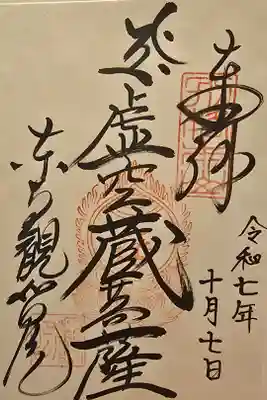 奉拝
令和七年
十月七日
虚空蔵菩薩
東寺観智院